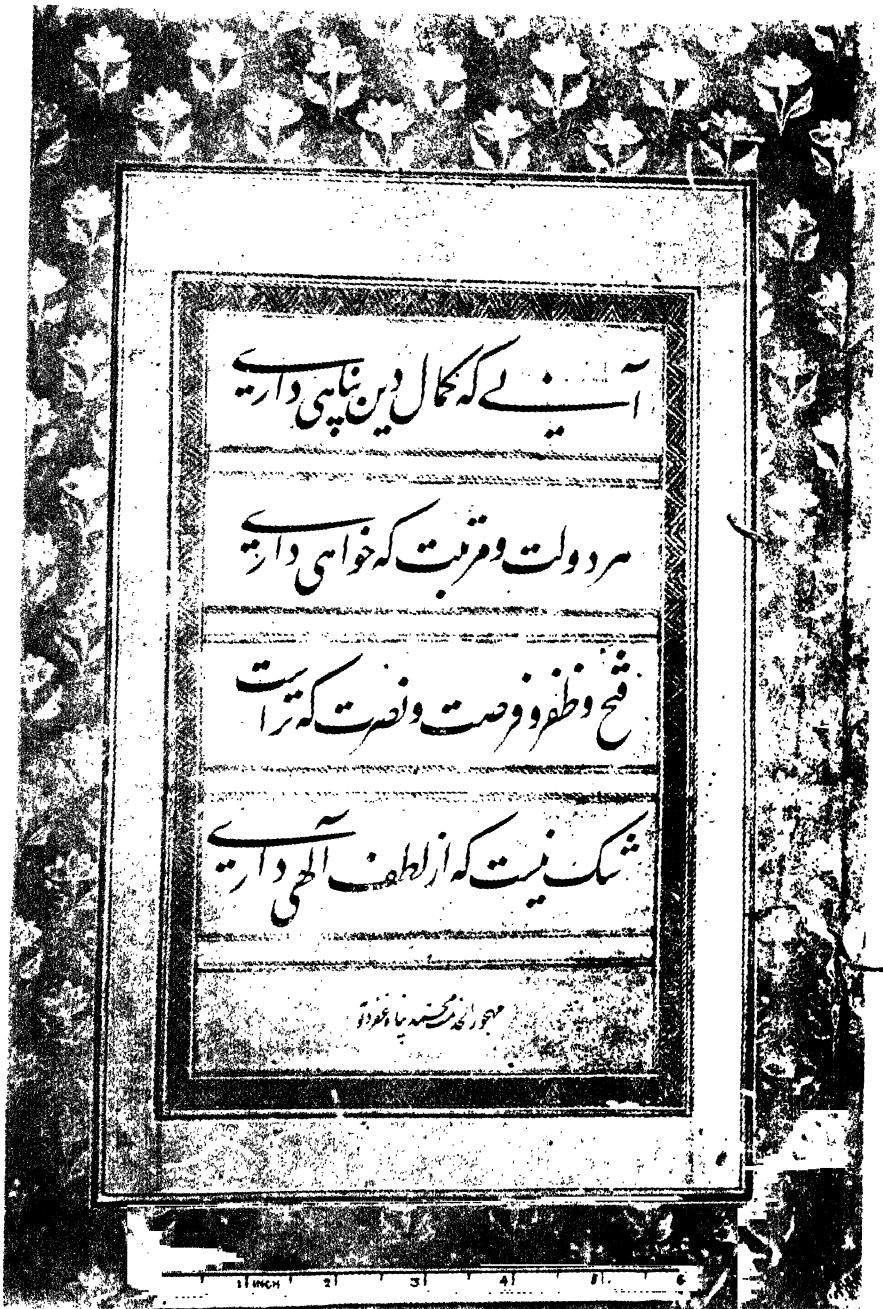 آنی که کمال دین پناهی داری
هر دولت و مرتبت که خواهی داری
فتح و ظفر و فرصت و نصرت که تراست
شک نیست که از لطف آلهی داری
پناه
1 INCH 2 3 4 5 6